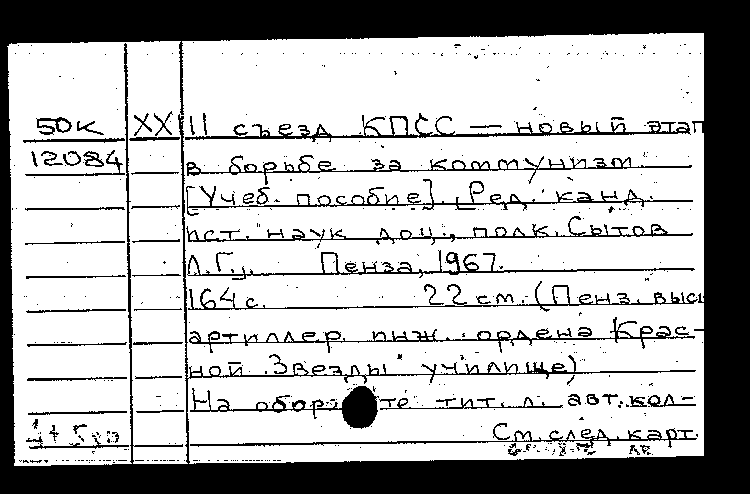 50К XXIII съезд КПСС — новый этап
12084 в борьбе за коммунизм.
[Учеб. пособие]. [Ред. канд.
ист. наук доц., полк. Сытов
Л.Г.]. Пенза, 1967.
164 с. 22 см. (Пенз. высш.
артиллер. инж. ордена Крас-
ной Звезды училище)
На обороте тит. л. авт. кол-
См. след. карт.